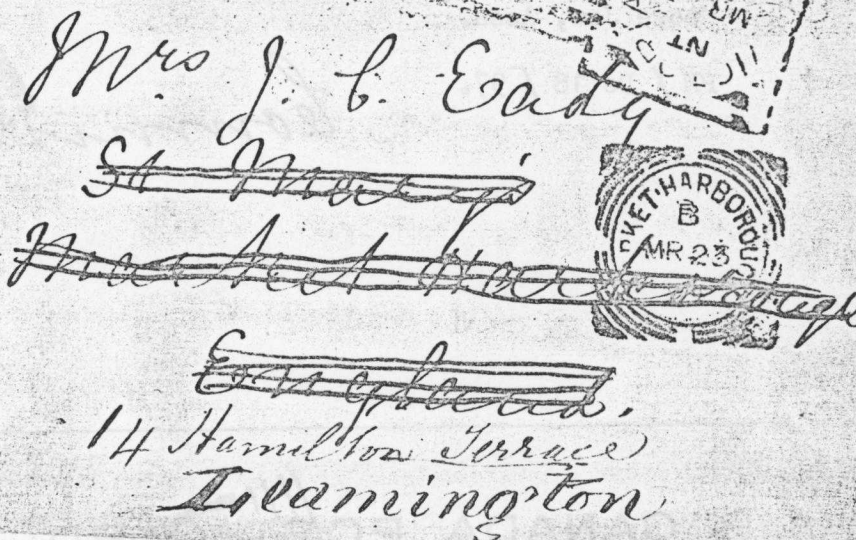 Mrs J. C. Eady
St Mary's
Market Harborough
England.
14 Hamilton Terrace
Leamington
RKET·HARBOROUG
B
MR 23
MR
NT